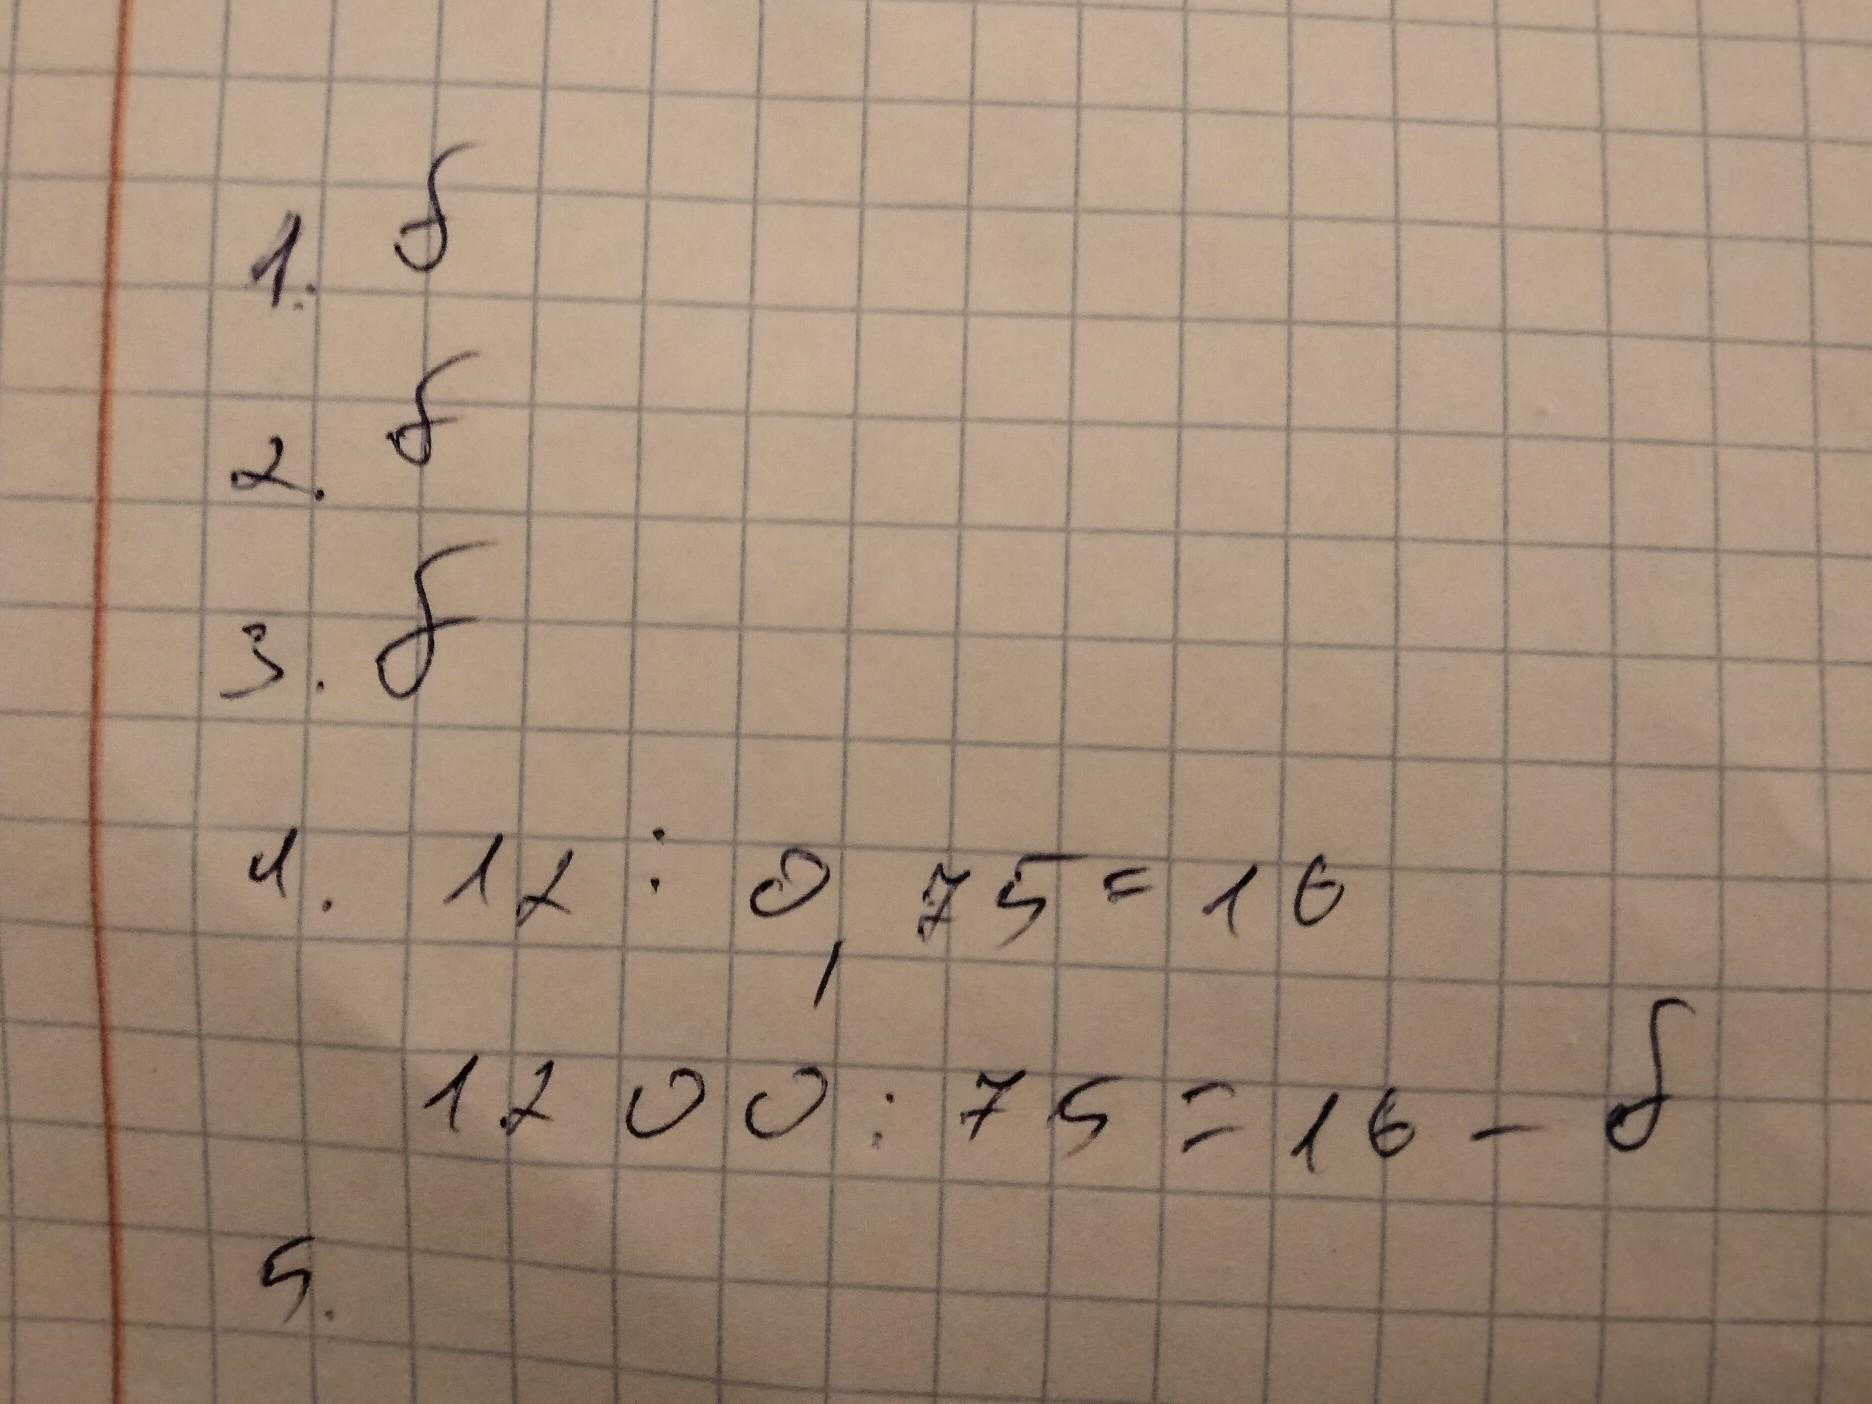 1. б
2. б
3. б
4. 12 : 0,75 = 16
1200 : 75 = 16 - б
5.